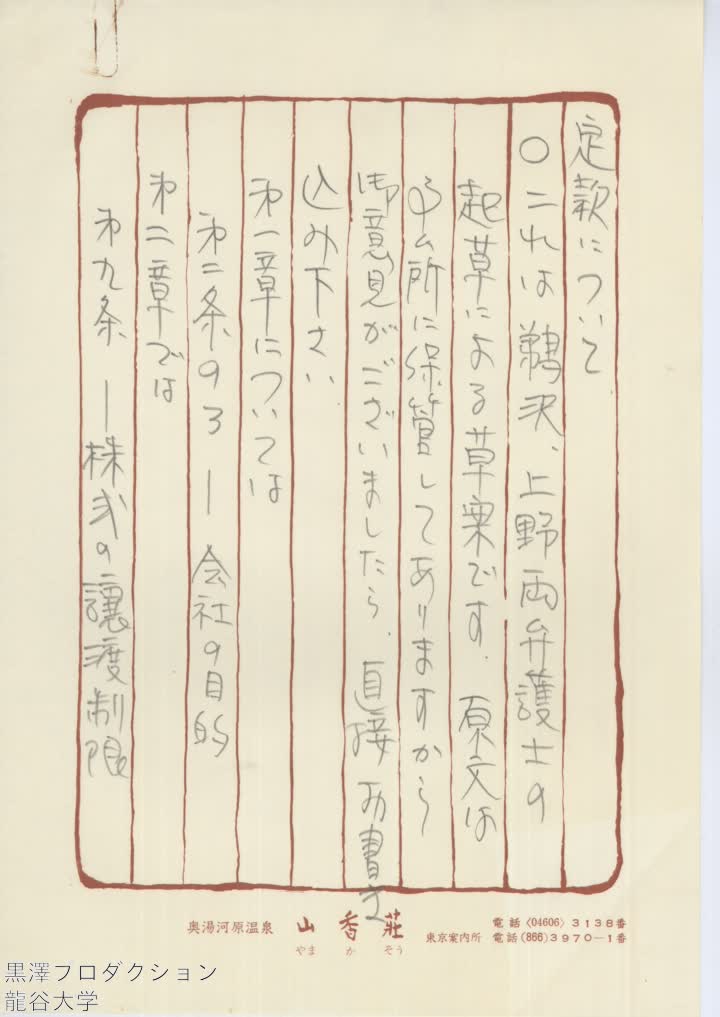 定款について
〇これは鵜沢、上野両弁護士の
起草による草案です。原文は
所に保管してありますから
御意見がございましたら、直接お書き
込み下さい
第一章については
第二条の3 ― 会社の目的
第二章では
第九条 ― 株式の譲渡制限
奥湯河原温泉 山香荘
やま か そう
電話〈04606〉3138番
東京案内所 電話(866)3970―1番
黒澤プロダクション
龍谷大学